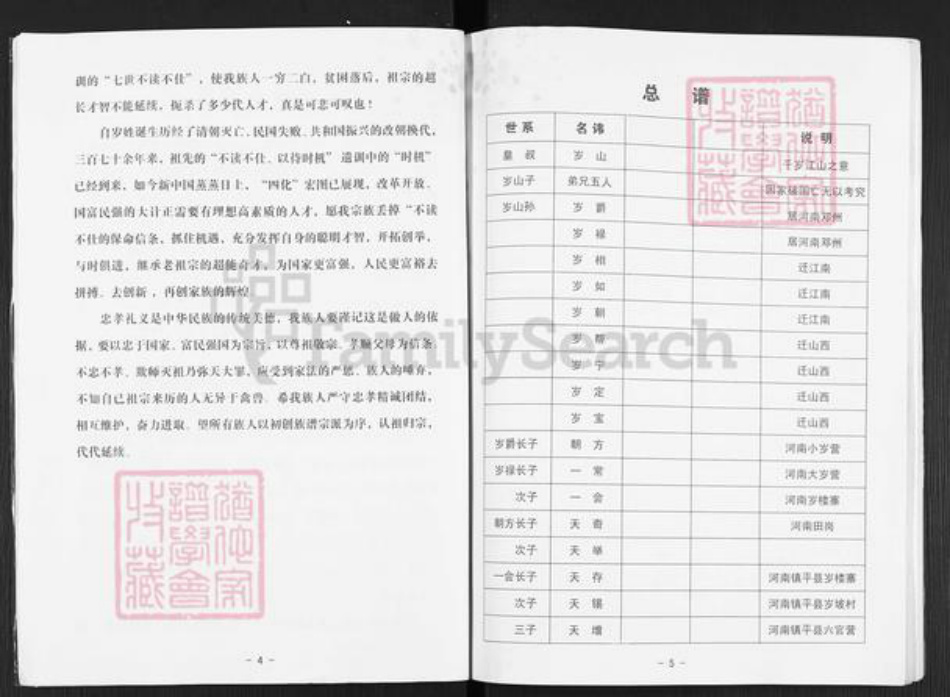 训的“七世不读不仕”，使我族人一穷二白，贫困落后，祖宗的超
长才智不能延续，扼杀了多少代人才，真是可悲可叹也！
自岁姓诞生历经了清朝灭亡、民国失败、共和国振兴的改朝换代，
三百七十余年来，祖先的“不读不仕、以待时机”遗训中的“时机”
已经到来，如今新中国蒸蒸日上，“四化”宏图已展现，改革开放、
国富民强的大计正需要有理想高素质的人才，愿我宗族丢掉“不读
不仕的保命信条，抓住机遇，充分发挥自身的聪明才智，开拓创举，
与时俱进，继承老祖宗的超能奇才，为国家更富强、人民更富裕去
拼搏、去创新，再创家族的辉煌
忠孝礼义是中华民族的传统美德，我族人要谨记这是做人的依
据，要以忠于国家、富民强国为宗旨，以尊祖敬宗、孝顺父母为信条
不忠不孝、欺师灭祖乃弥天大罪，应受到家法的严惩、族人的唾弃，
不知自己祖宗来历的人无异于禽兽。希我族人严守忠孝精诚团结，
相互维护，奋力进取。望所有族人以初创族谱宗派为序，认祖归宗，
代代延续。
- 4 -
总 谱
世系 名讳 说明
皇叔 岁山 千岁江山之意
岁山子 弟兄五人 因家破国亡无以考究
岁山孙 岁爵 居河南邓州
岁禄 居河南邓州
岁相 迁江南
岁如 迁江南
岁朝 迁江南
岁 迁山西
岁宁 迁山西
岁定 迁山西
岁宝 迁山西
岁爵长子 朝方 河南小岁营
岁禄长子 一常 河南大岁营
次子 一会 河南岁楼寨
朝方长子 天奇 河南田岗
次子 天举
一会长子 天存 河南镇平县岁楼寨
次子 天锡 河南镇平县岁坡村
三子 天增 河南镇平县六官营
- 5 -
犹他家譜學會收藏
犹他家譜學會收藏
FamilySearch